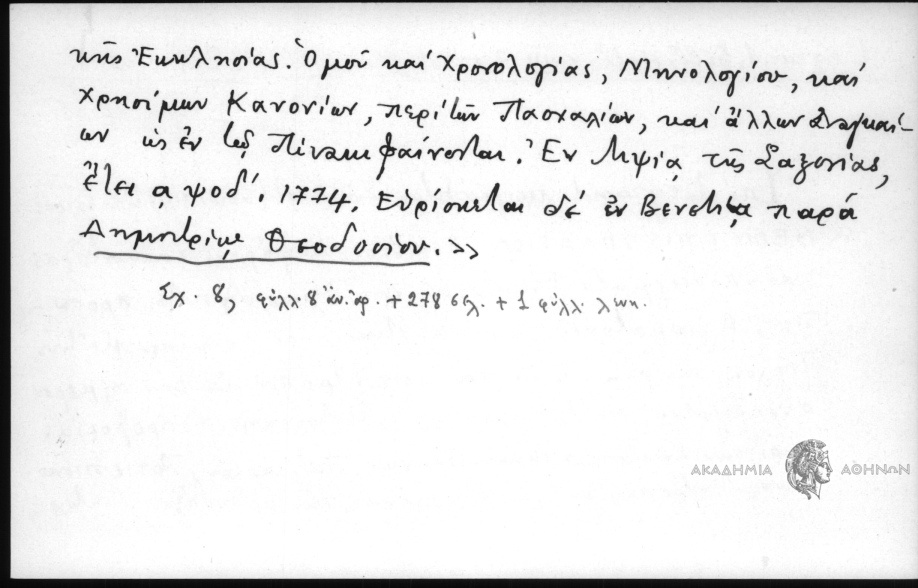 κῆς Ἐκκλησίας. Ὁμοῦ καί Χρονολογίας, Μηνολογίου, καί
Χρησίμων Κανονίων, περί τῶν Πασχαλίων, καί ἄλλων ἀναγκαί-
ων ὡς ἐν τῷ Πίνακι φαίνονται. Ἐν Λιψίᾳ τῆς Σαξονίας,
ἔτει αψοδ΄. 1774. Εὑρίσκεται δέ ἐν Βενετίᾳ παρά
Δημητρίῳ Θεοδοσίου.»
Σχ. 8, φύλλ. 8 ἀν. ἀρ. + 278 σελ. + 1 φύλλ. λευκ.
ΑΚΑΔΗΜΙΑ ΑΘΗΝΩΝ